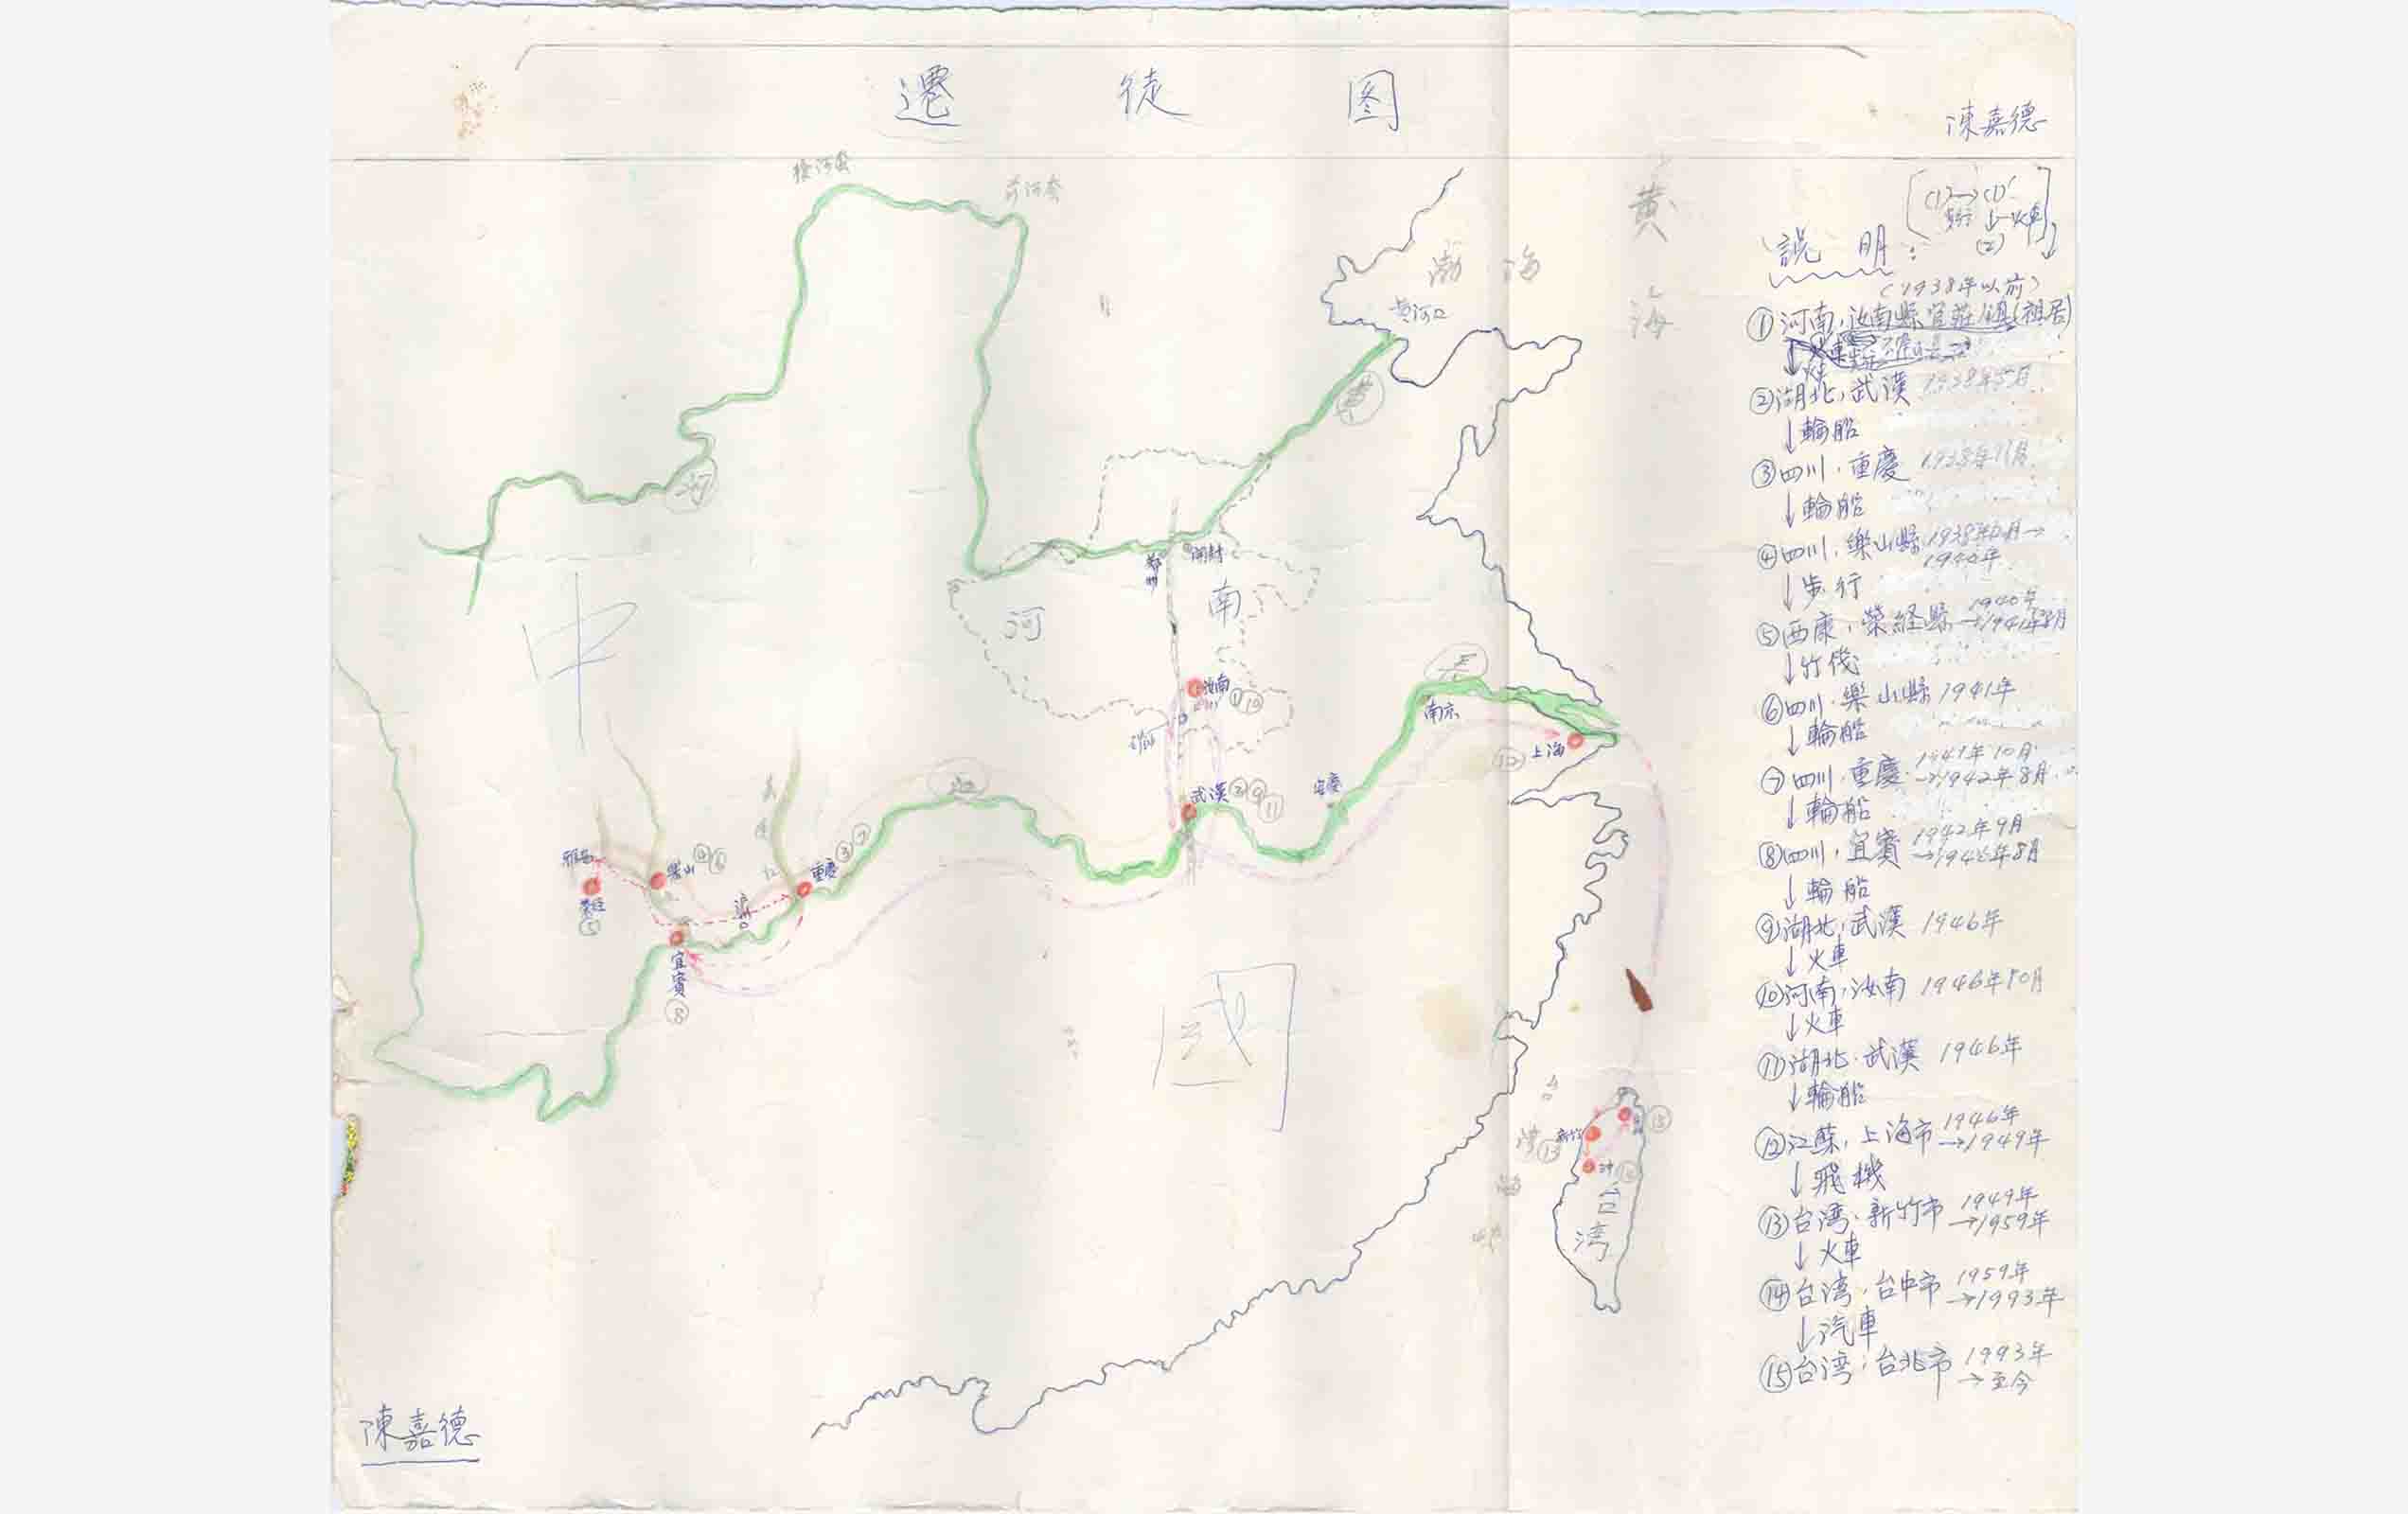 遷徙图
陳嘉德
(1)→(1)'
步行 ↓火車
(2)
後河套
前河套
黃海
渤海
說明：
(1938年以前)
①河南，汝南縣官莊鎮(祖居)
黃河口
↓火車
②湖北，武漢 1938年5月
黃
↓輪船
③四川，重慶 1938年11月
河
↓輪船
④四川，樂山縣 1938年12月→
1940年
鄭州
開封
↓步行
河南
中
⑤西康，榮經縣 1940年
→1941年8月
↓竹筏
長
汝南 ①⑩
⑥四川，樂山縣 1941年
南京
↓輪船
上海 ⑫
⑦四川，重慶 1941年10月
→1942年8月
江
武漢 ②⑨⑪
安慶
↓輪船
⑧四川，宜賓 1942年9月
→1946年8月
雅安
樂山 ④⑥
重慶 ③⑦
嘉陵江
↓輪船
榮經
⑤
瀘州
⑨湖北，武漢 1946年
↓火車
宜賓
⑧
⑩河南，汝南 1946年10月
國
↓火車
⑪湖北，武漢 1946年
↓輪船
台灣海峽
⑮
新竹 ⑬
⑫江蘇，上海市 1946年
→1949年
台中 ⑭
↓飛機
台湾
⑬台湾，新竹市 1949年
→1959年
↓火車
⑭台湾，台中市 1959年
→1993年
↓汽車
⑮台湾，台北市 1993年
→至今
陳嘉德